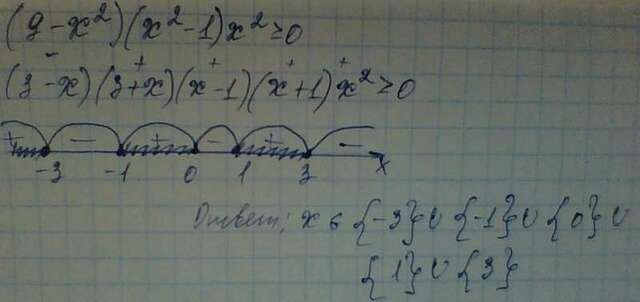 (9-x²)(x²-1)x²≥0
- + + + +
(3-x)(3+x)(x-1)(x+1)x²≥0
+ - + - + -
-3 -1 0 1 3 x
Ответ: x ∈ {-3}∪{-1}∪{0}∪
{1}∪{3}